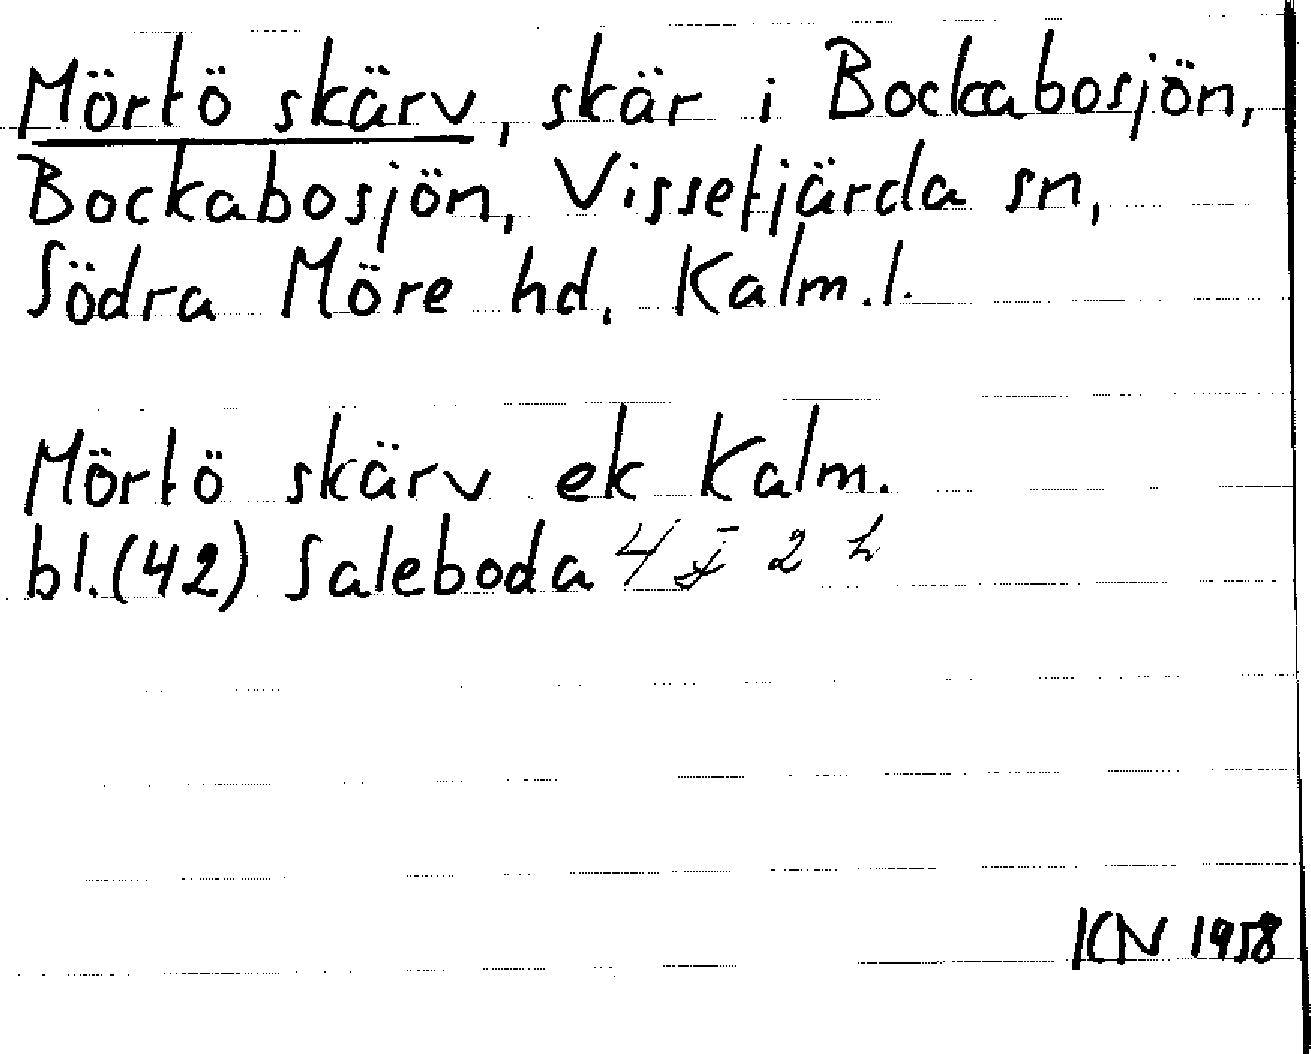 Mörtö skärv, skär i Bockabosjön,
Bockabosjön, Vissefjärda sn,
Södra Möre hd, Kalm.l.
Mörtö skärv ek Kalm.
bl.(42) Saleboda 4 2 h
KN 1958